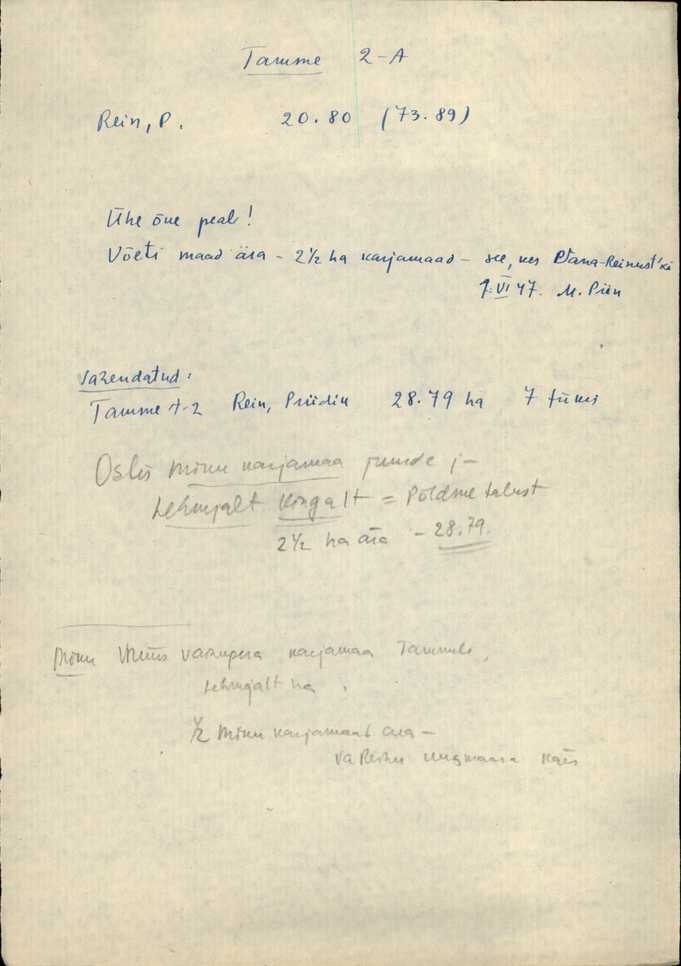 Tamme 2-A
Rein, P. 20.80 (73.89)
Ühe õue peal!
Võeti maad ära - 2½ ha karjamaad - see, kes Vana-Reinust'ki
7. VI 47. M. Piin
Vähendatud:
Tamme A-2 Rein, Priidik 28.79 ha
Ostis Mõnu karjamaa juurde ;-
Lehmjalt Kingalt = Põldme talust
2½ ha ära - 28.79.
Mõnu karjamaa Tammele,
Lehmjalt ka.
½ Mõnu karjamaast ära -
käes